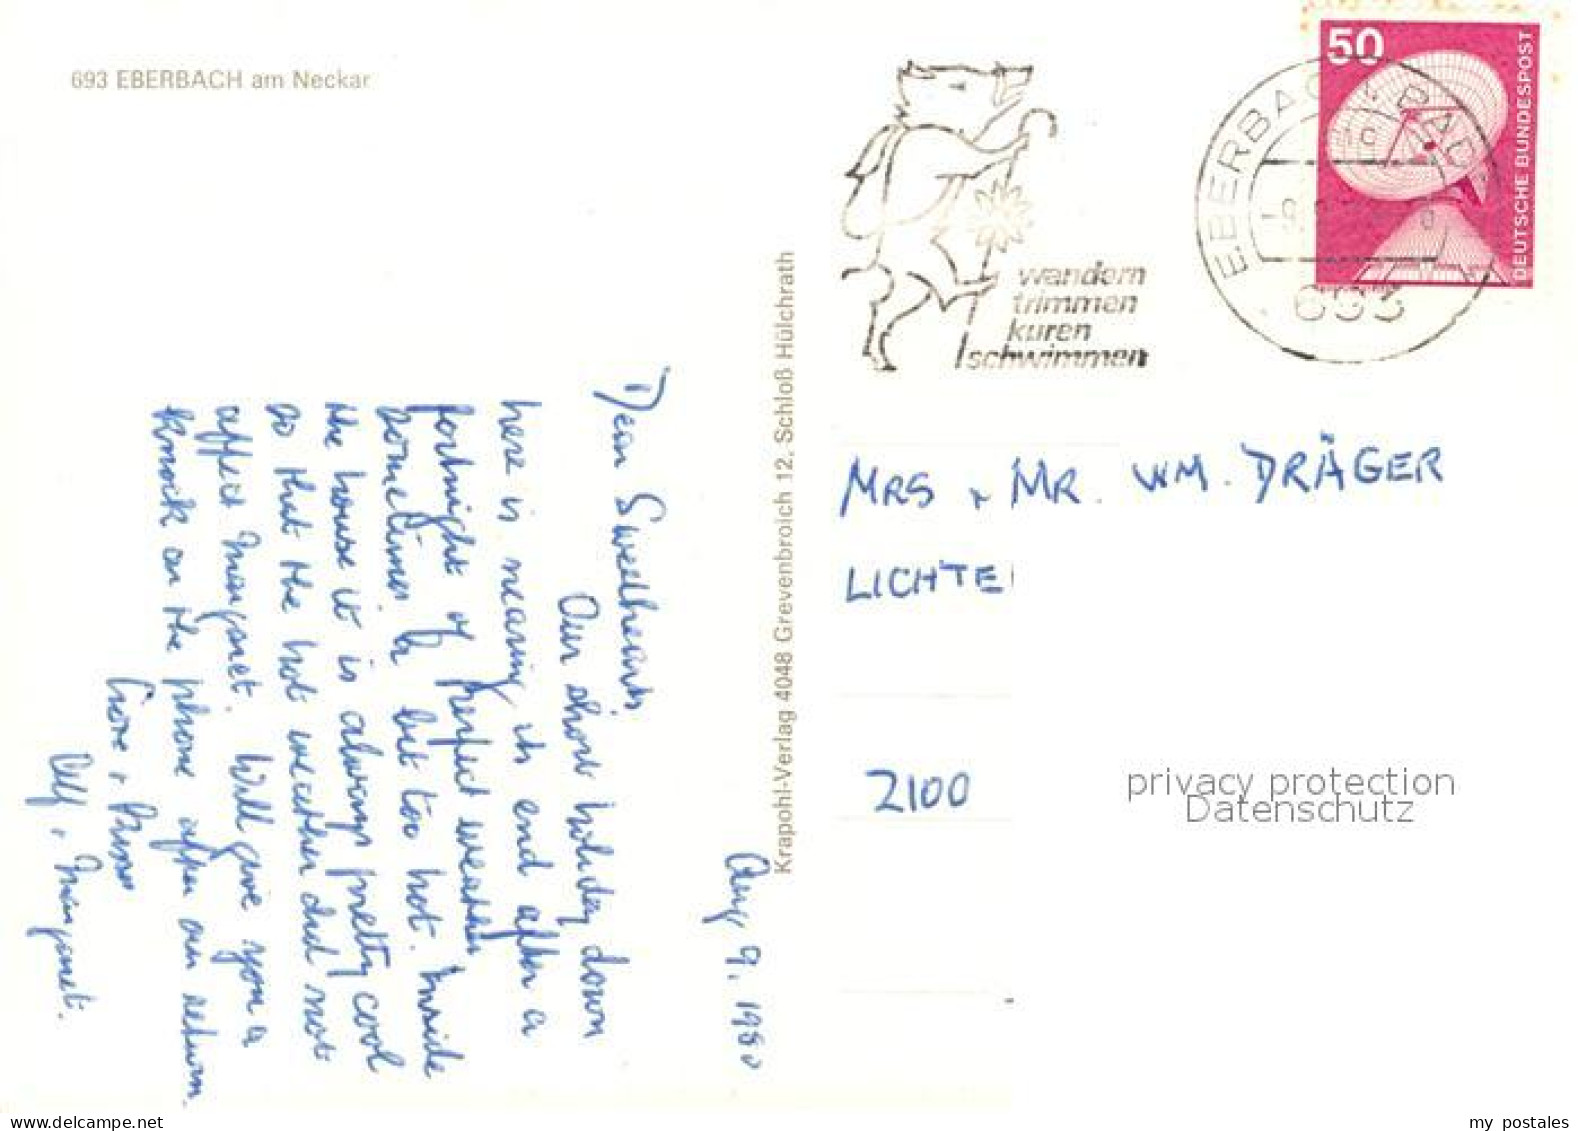 693 EBERBACH am Neckar
Aug 9. 1980
Dear Sweethearts,
Our short holiday down
here is nearing its end after a
fortnight of perfect weather
sometimes a bit too hot. Inside
the house it is always pretty cool
so that the hot weather did not
affect Margaret. Will give you a
knock on the phone after our return.
Love +
Alf + Margaret.
Krapohl-Verlag 4048 Grevenbroich 12, Schloß Hülchrath
wandern
trimmen
kuren
schwimmen
EBERBACH BAD
693
50
DEUTSCHE BUNDESPOST
MRS + MR. WM. DRÄGER
LICHTE
2100
privacy protection
Datenschutz
delcampe.net
my_postales